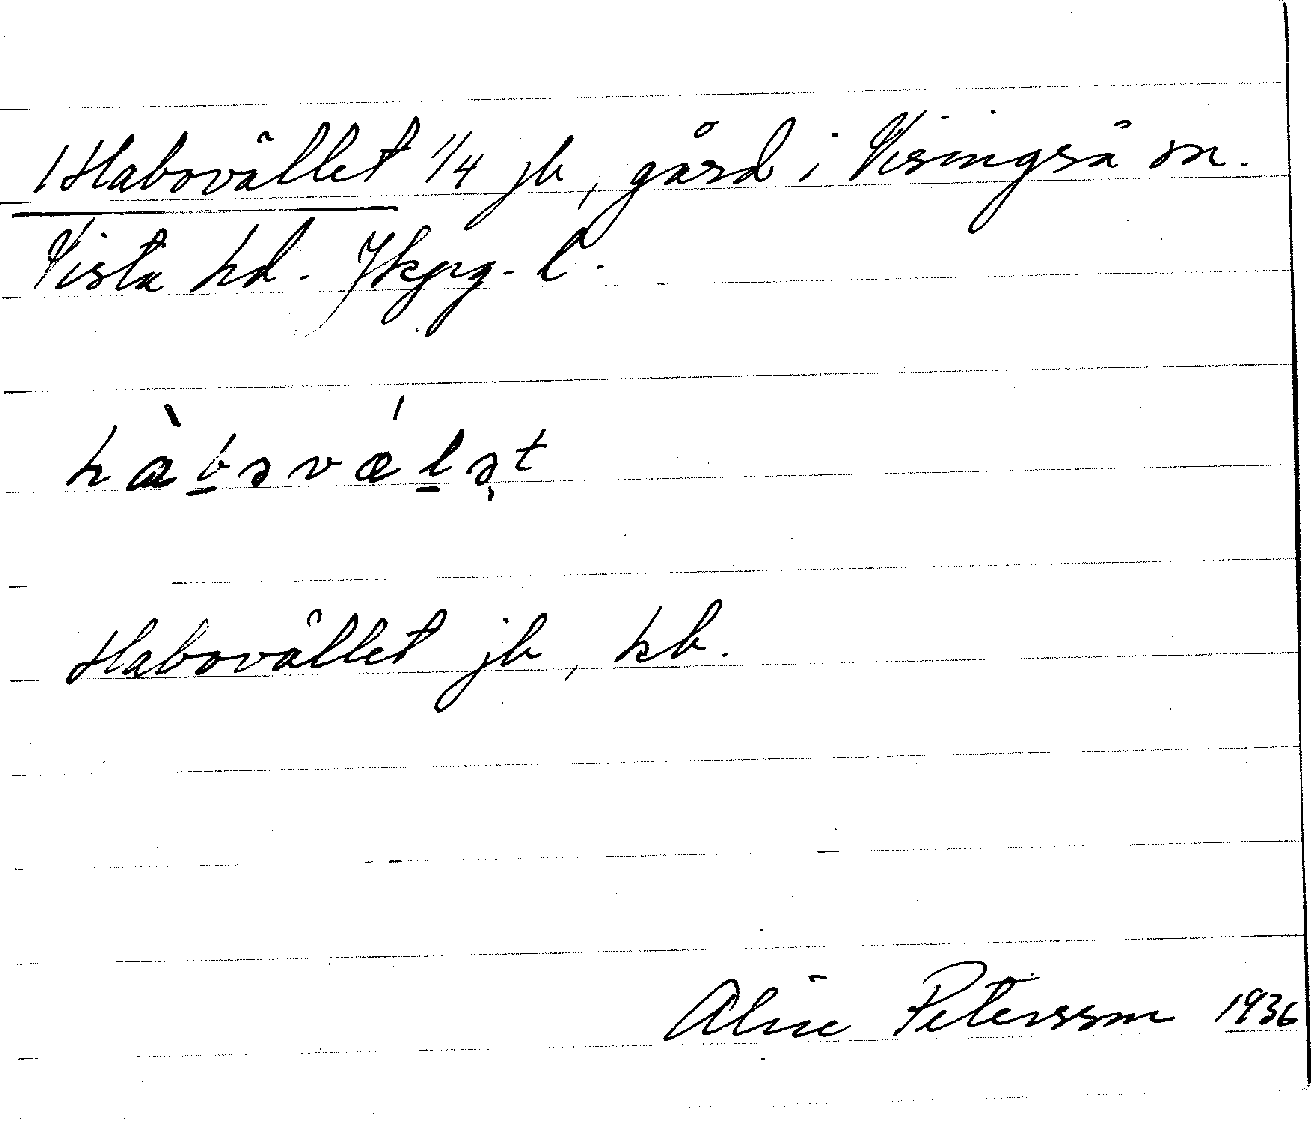 Habovället 1/4 jb, gård i Visingsö sn.
Vista hd. Jkpg. l.
hàbəvǽlət
Habovället jb, kb.
Alice Petersson 1936